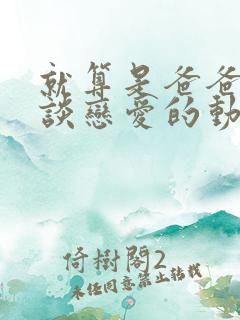 就算是爸爸
談戀愛的動
倚樹閣2
未經同意禁止轉載